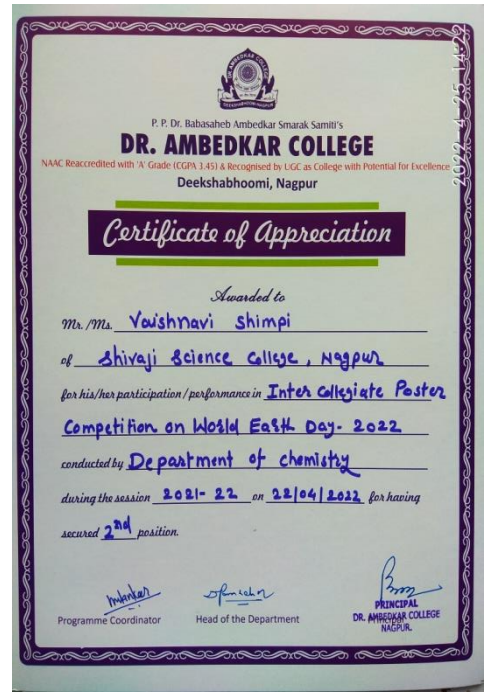 DR. AMBEDKAR COLLEGE
DEEKSHABHOOMI-NAGPUR
P. P. Dr. Babasaheb Ambedkar Smarak Samiti's
DR. AMBEDKAR COLLEGE
NAAC Reaccredited with 'A' Grade (CGPA 3.45) & Recognised by UGC as College with Potential for Excellence
Deekshabhoomi, Nagpur
Certificate of Appreciation
Awarded to
Mr./Ms. Vaishnavi Shimpi
of Shivaji Science College, Nagpur
for his/her participation/performance in Inter Collegiate Poster
Competition on World Earth Day- 2022
conducted by Department of chemistry
during the session 2021-22 on 22/04/2022 for having
secured 2nd position.
Programme Coordinator
Head of the Department
PRINCIPAL
DR. AMBEDKAR COLLEGE
Principal
NAGPUR.
2022-4-25 14:22